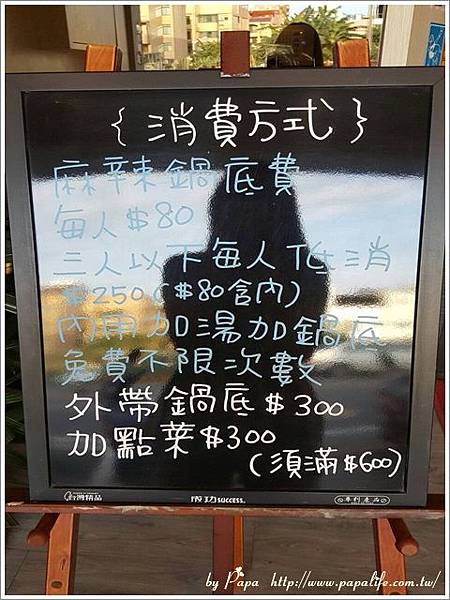 {消費方式}
麻辣鍋底費
每人$80
三人以下每人低消
$250($80含內)
內用加湯加鍋底
免費不限次數
外帶鍋底$300
加點菜$300
(須滿$600)
台灣精品 成功SUCCESS. 專利產品
by Papa http://www.papalife.com.tw/